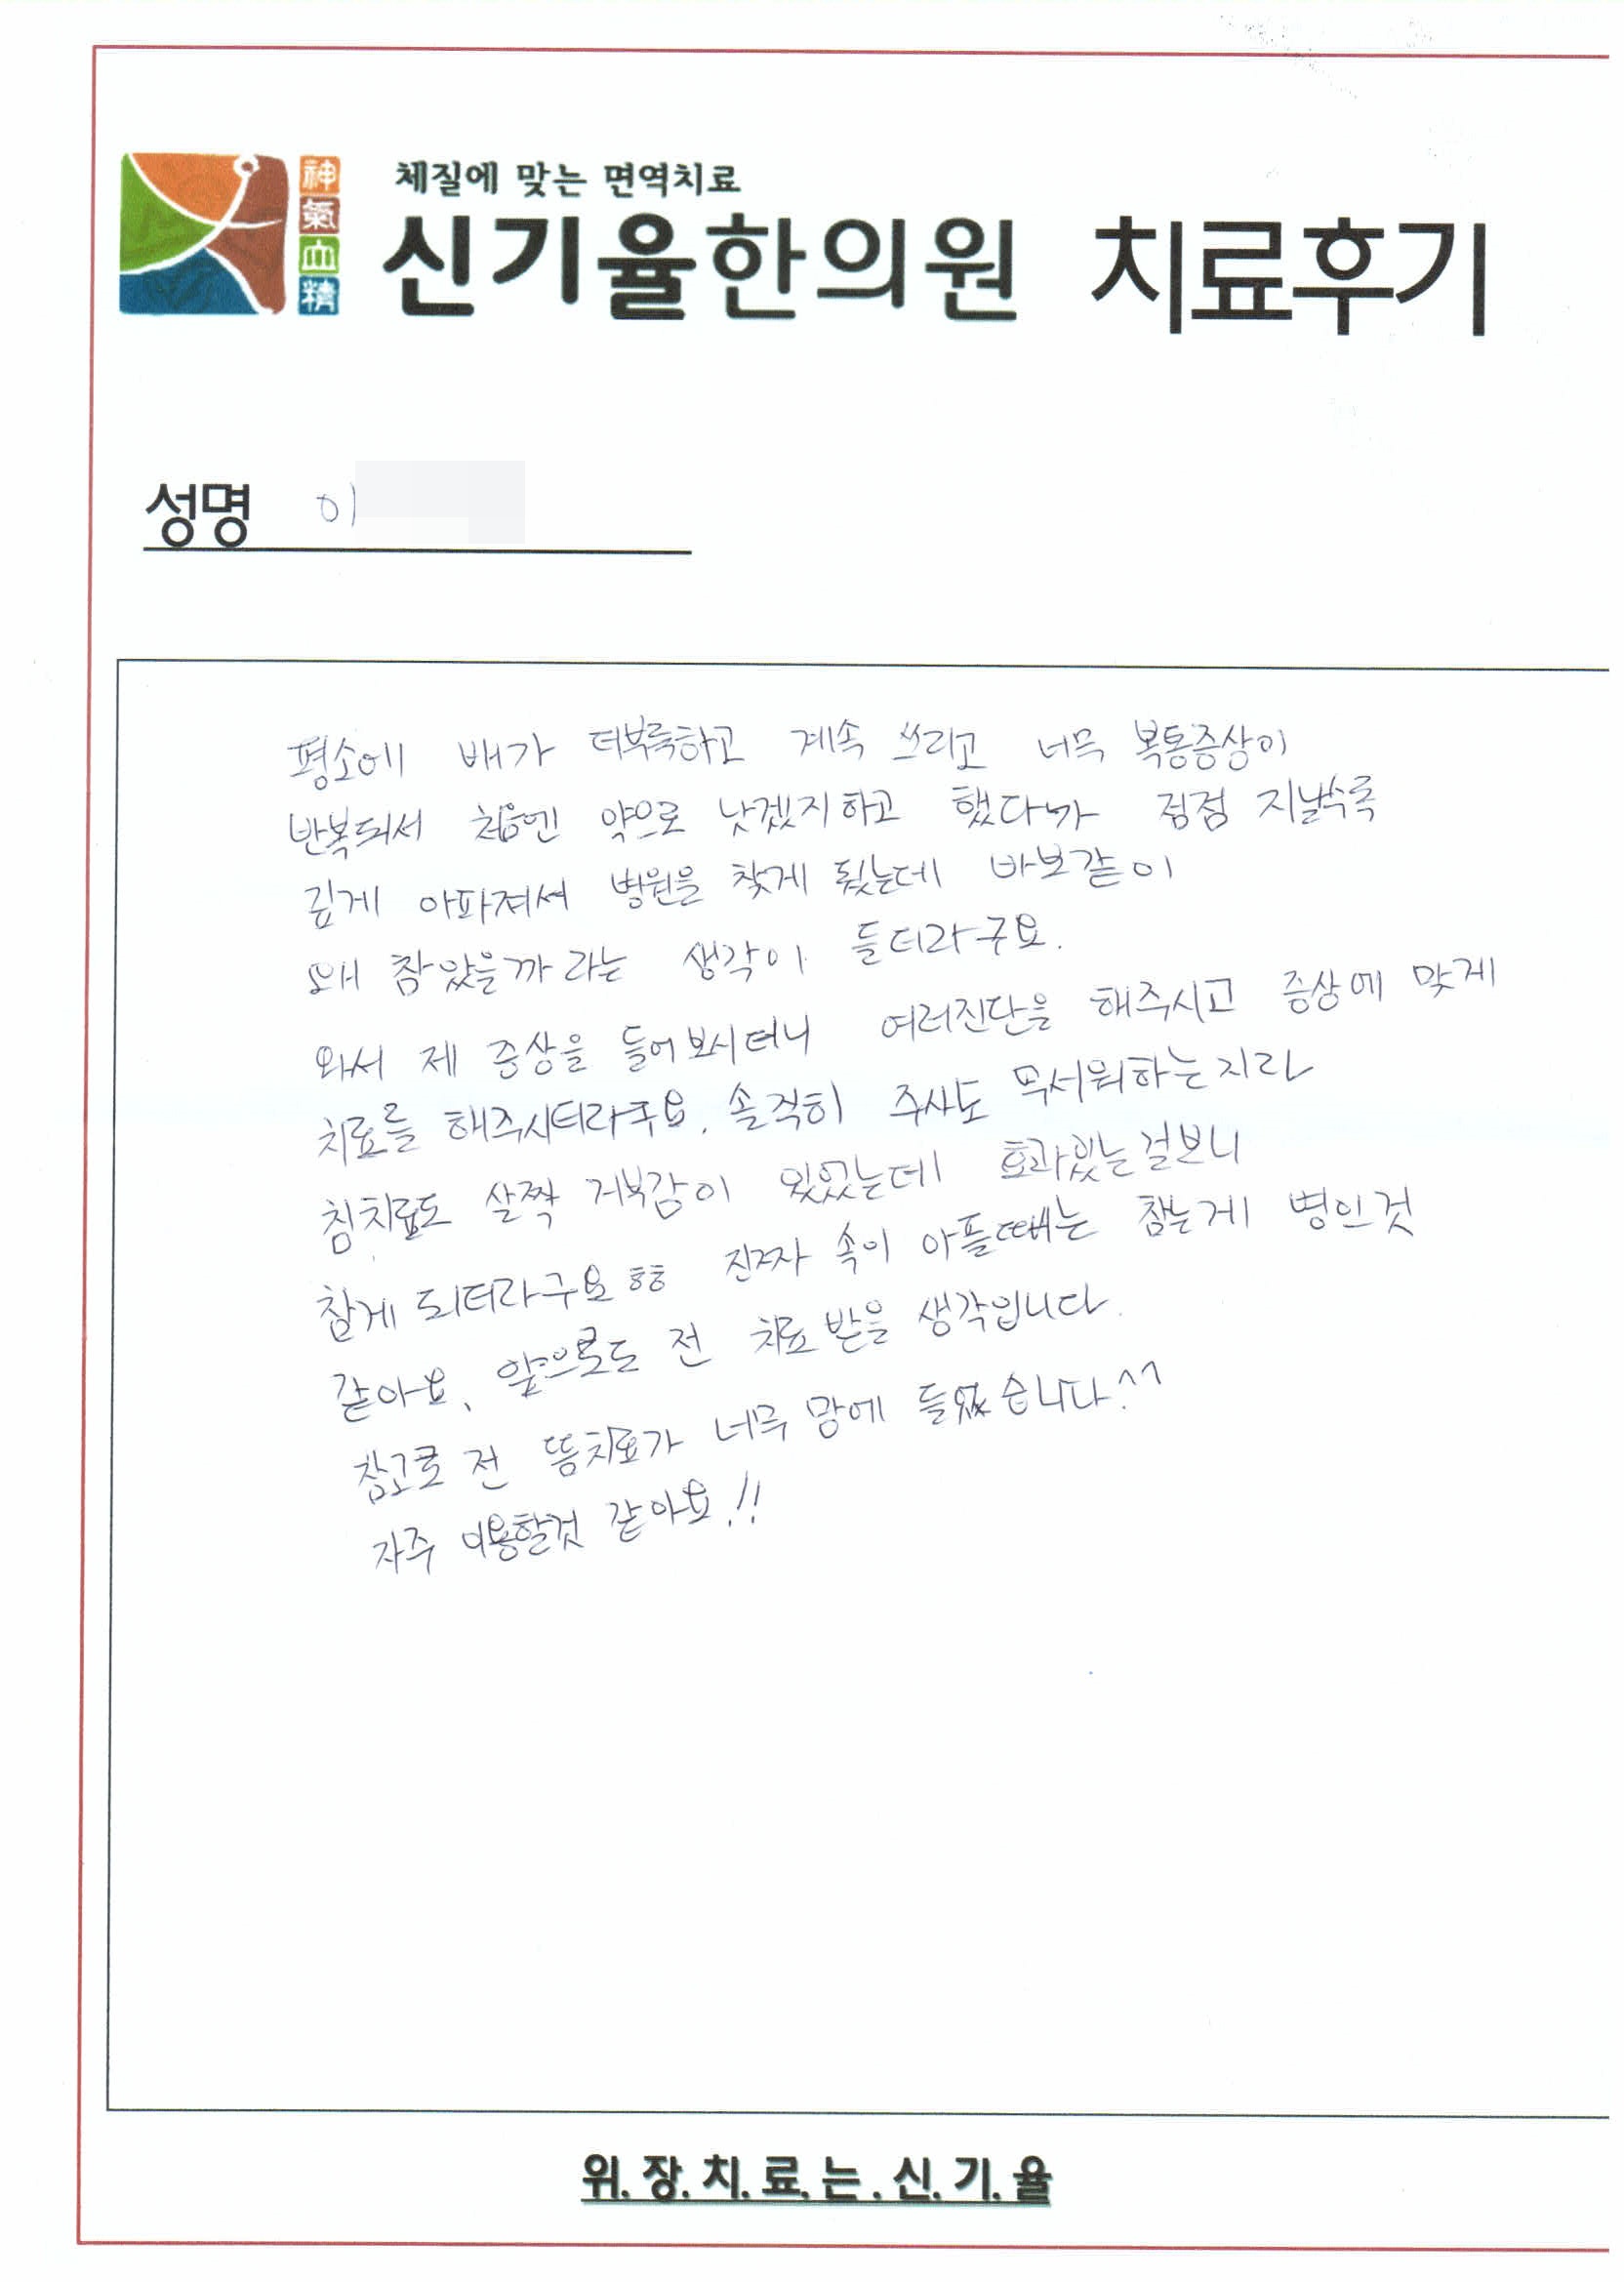 神
氣
血
精
체질에 맞는 면역치료
신기율한의원 치료후기
성명 이
평소에 배가 더부룩하고 계속 쓰리고 너무 복통증상이
반복되서 처음엔 약으로 낫겠지하고 했다가 점점 지날수록
깊게 아파져서 병원을 찾게 됬는데 바보같이
왜 참았을까 라는 생각이 들더라구요.
와서 제 증상을 들어보시더니 여러진단을 해주시고 증상에 맞게
치료를 해주시더라구요. 솔직히 주사도 무서워하는지라
침치료도 살짝 거부감이 있었는데 효과있는걸보니
참게 되더라구요 ㅎㅎ 진짜 속이 아플때는 참는게 병인것
같아요. 앞으로도 전 치료 받을 생각입니다.
참고로 전 뜸치료가 너무 맘에 들었습니다.^^
자주 이용할것 같아요!!
위.장.치.료.는.신.기.율